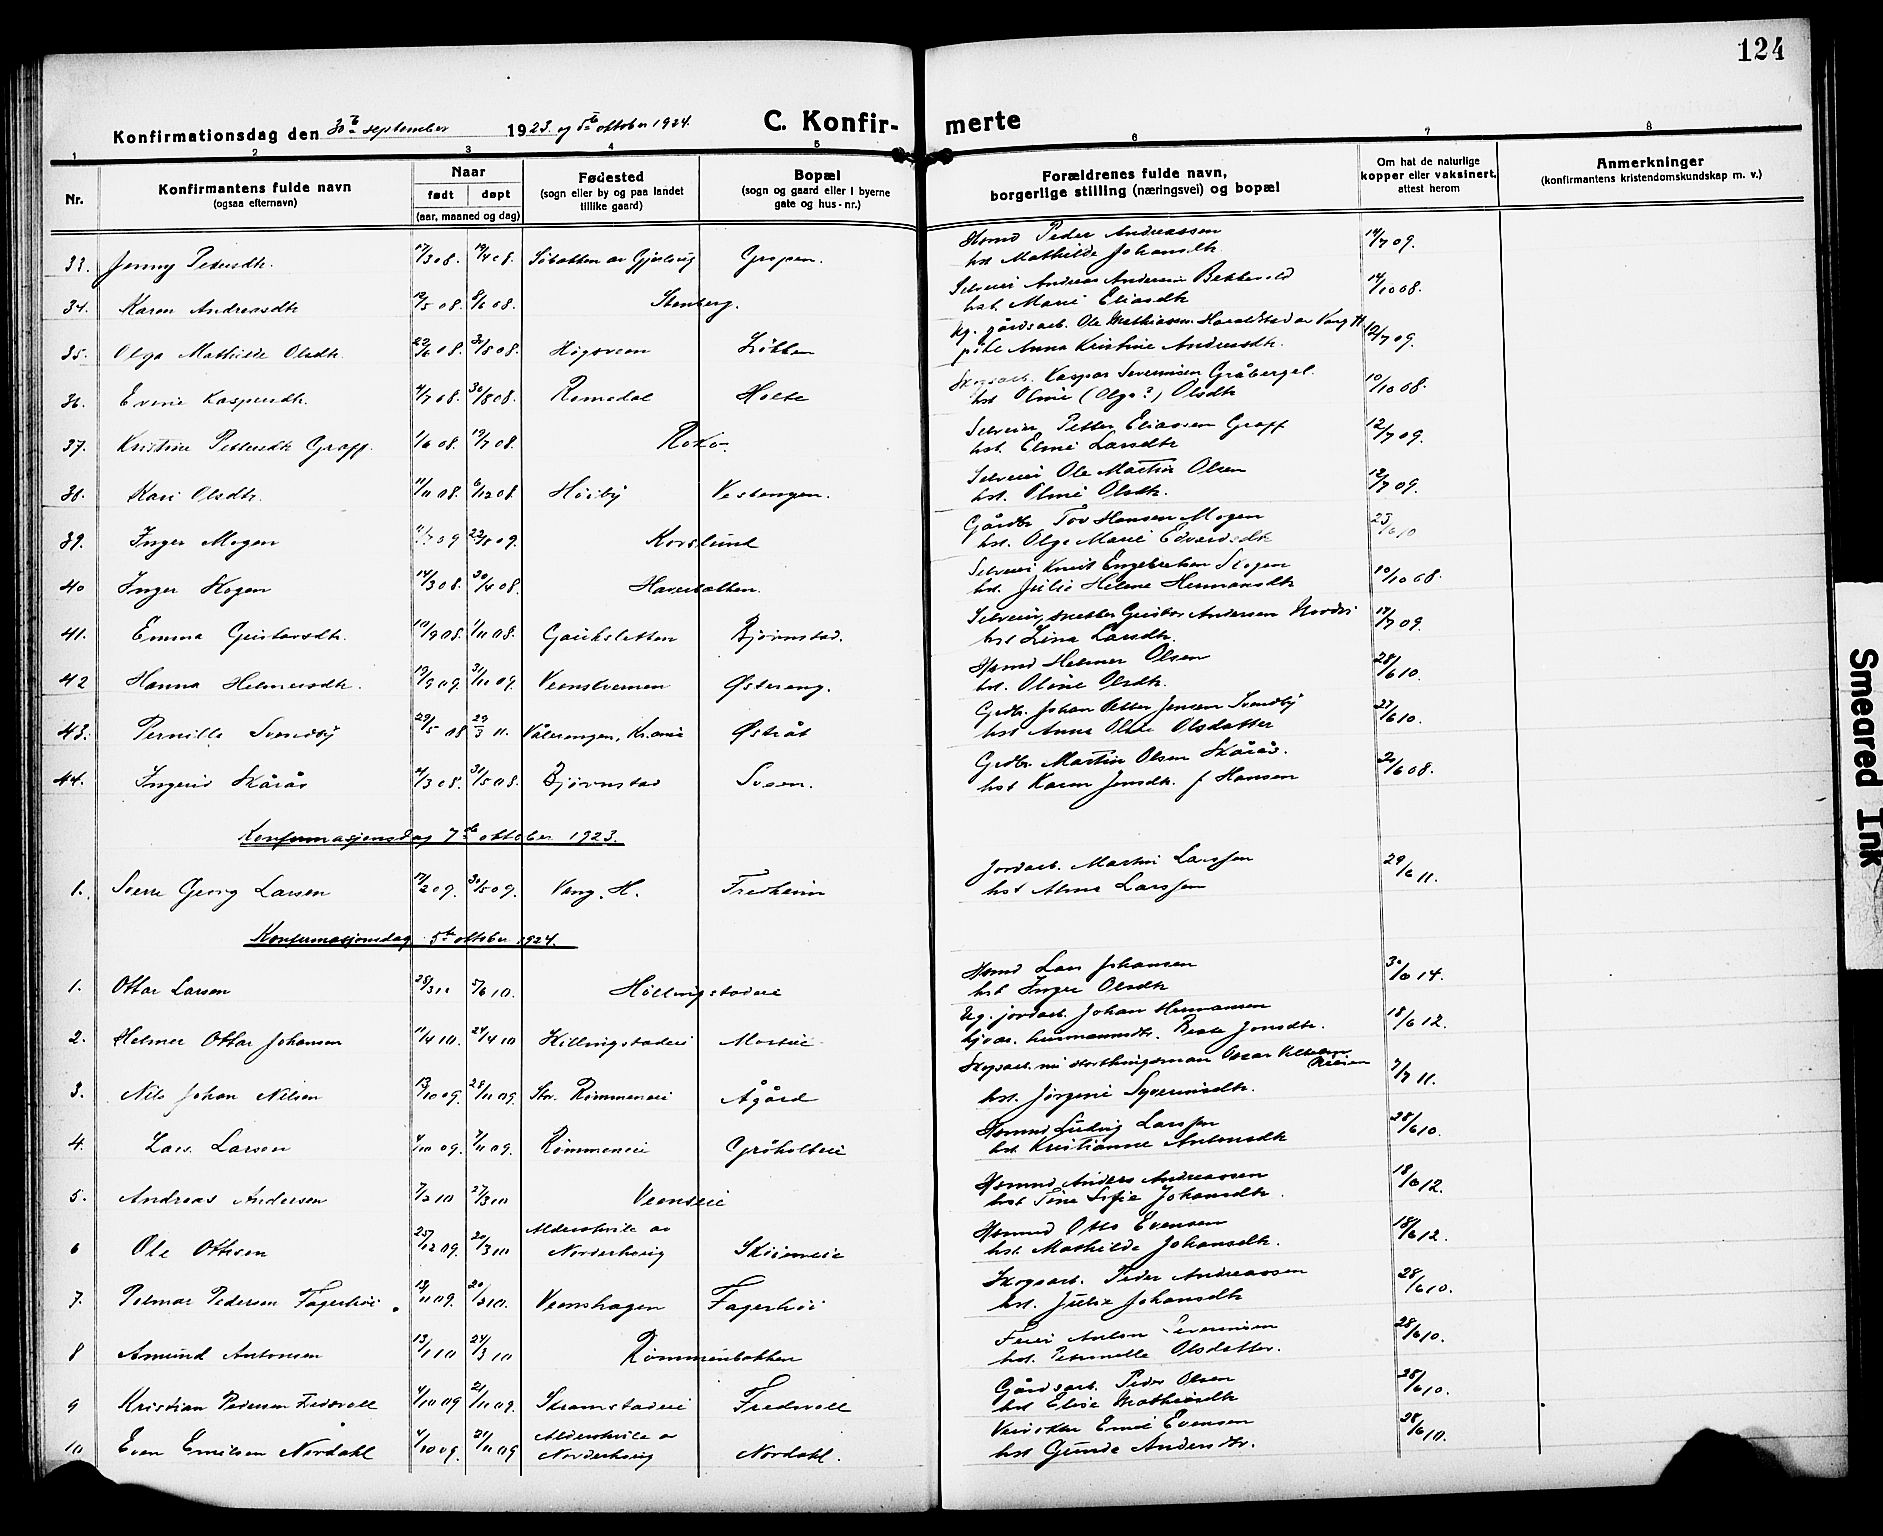 124
Konfirmationsdag den 30te september 1923 og 5te oktober 1924. C. Konfirmerte
1 2 3 4 5 6 7 8
Nr. Konfirmantens fulde navn (ogsaa efternavn) Naar født døpt (aar, maaned og dag) Fødested (sogn eller by og paa landet tillike gaard) Bopæl (sogn og gaard eller i byerne gate og hus-nr.) Forældrenes fulde navn, borgerlige stilling (næringsvei) og bopæl Om hat de naturlige kopper eller vaksinert, attest herom Anmerkninger (konfirmantens kristendomskundskap m. v.)
33. Jenny Pedersdtr. 17/3 08. 19/4 08. av Gjøslvig Gropen. Husmd Peder Andreassen 14/7 09.
hst Mathilde Johansdtr.
34. Karen Andreasdtr 12/5 08. 8/6 08. Stenberg. Selveier Andreas Andersen Bekkevold 14/10 08.
hst. Marie Eliasdtr
35. Olga Mathilde Olsdtr. 22/6 08. 30/8 08. Høgsveen Løkken Ug. gårdsarb. Ole Mathiassen Haraldstad av Vang H. 12/7 09.
pike Anna Kristine Andersdtr.
36. Evine Kaspersdtr. 4/7 08. 30/8 08. Romedal Holte Skogsarb. Kaspar Severinsen Gråberget. 10/10 08.
hst Oline (Olga?) Olsdtr
37. Kristine Pettersdtr Graff. 1/6 08. 19/7 08. Rokø. Selveier Petter Eliassen Graff 12/7 09.
hst. Eline Larsdtr
38. Kari Olsdtr. 11/11 08. 6/12 08. Høiby Vestengen. Selveier Ole Martin Olsen 12/7 09.
hst. Oline Olsdtr.
39. Inger Mogen 11/7 09 22/8 09. Korslund Gårdbr. Tov Hansen Mogen 23/6 10
hst. Olga Marie Edvardsdtr
40 Inger Skogen 14/3 08. 30/4 08. Haverbakken. Selveier Knut Engebretsen Skogen 10/10 08.
hst. Julie Helene Hermansdtr
41. Emma Gustavsdtr. 10/9 08. 1/11 08. Gauksletten Bjørnstad. Selveier, snekker Gustav Andersen 17/7 09.
hst Lina Larsdtr.
42 Hanna Helmersdtr. 19/9 09. 31/10 09. Veenskvernen Østereng. Husmd Helmer Olsen 28/6 10.
hst. Oline Olsdtr.
43. Pernille Svendby 29/5 08 29/3 11. Vålerengen, Kr.ania Østråt Grdbr. Johan Petter Jensen Svendby 27/6 10.
hst Anna Oline Olsdatter
44. Ingerid Skårås 4/3 08. 31/5 08. Bjørnstad Sveen. Grdbr. Martin Olsen Skårås. 20/6 08.
hst Karen Jensdtr. f Hansen
Konfirmasjonsdag 7de oktober 1923.
1. Sverre Georg Larsen 17/2 09. 30/5 09. Vang. H. Fredheim Jordarb. Martin Larssen 29/6 11.
hst Alma Larssen
Konfirmasjonsdag 5te oktober 1924.
1. Ottar Larsen 28/3 10 5/6 10. Hillingstadeie Husmd Lars Johansen 30/6 14.
hst Inger Olsdtr
2. Helmer Ottar Johansen 11/4 10. 24/4 10 Killingstadeie Morteie Ug. jordarb. Johan Hermansen 18/6 12.
hjvær. husmannsdtr. Beate Jonsdtr.
3. Nils Johan Nilsen 13/10 09. 28/11 09. Str. Rømmeneie Ågård Skogsarb. nu storthingsman Oscar Nilsen 7/7 11.
hst. Jørgine Syverinsdtr.
4. Lars Larsen 4/10 09. 7/11 09. Rømmeneie Gråholteie Husmd Ludvig Larssen 28/6 10.
hst Kristianne Antonsdtr
5. Andreas Andersen 7/2 10 27/3 10 Veenseie Husmd Anders Andreassen 18/6 12.
hst Tina Sofie Johansdtr.
6 Ole Ottesen 25/12 09. 20/3 10 Alderskvile av Norderhovig Skoieneie Husmd Otto Evensen 18/6 12.
hst. Mathilde Johansdtr.
7. Pelmar Pedersen Fagerhøi. 12/11 09. 20/2 10. Veenshagen Fagerhøi Skogsarb. Peder Andreassen 28/6 10.
hst. Julie Johansdtr
8 Amund Antonsen 13/1 10 24/3 10 Rømmenbakken Feier Anton Severinsen 28/6 10.
hst. Petronelle Olsdatter.
9 Kristian Pedersen Fredvoll 4/10 09 21/11 09. Skramstadeie Fredvoll Gårdsarb. Peder Olsen 28/6 10.
hst Elise Mathiasdtr
10 Even Emilsen Nordahl 4/10 09. 21/11 09 Alderskvile av Norderhovig Nordahl. Emil Evensen 28/6 10.
hst Gunda Andersdtr.
Smeared Ink